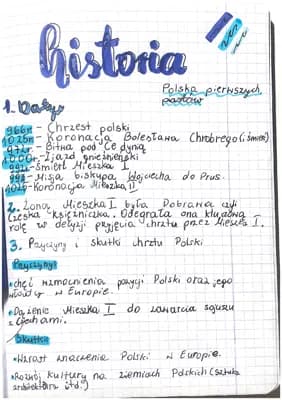 historia
Polska pierwszych
piastów
1. Daty:
966r - Chrzest polski
1025r - Koronacja Bolesława Chrobrego (i śmierć)
972r - Bitwa pod Cedynią
1000r - Zjazd gnieźnieński
992r - Śmierć Mieszka I
997r - Misja biskupa Wojciecha do Prus
1025 - Koronacja Mieszka II
2. Żoną Mieszka I była Dobrawa czyli
czeska księżniczka. Odegrała ona kluczową
rolę w decyzji przyjęcia chrztu przez Mieszka I.
3. Przyczyny i skutki chrztu Polski
Przyczyny:
• chęć wzmocnienia pozycji Polski oraz jego
władcy w Europie.
• Dążenie Mieszka I do zawarcia sojuszu
z Czechami.
Skutki:
• Wzrost znaczenia Polski w Europie.
• Rozwój kultury na ziemiach Polskich (sztuka
architektura itd.)